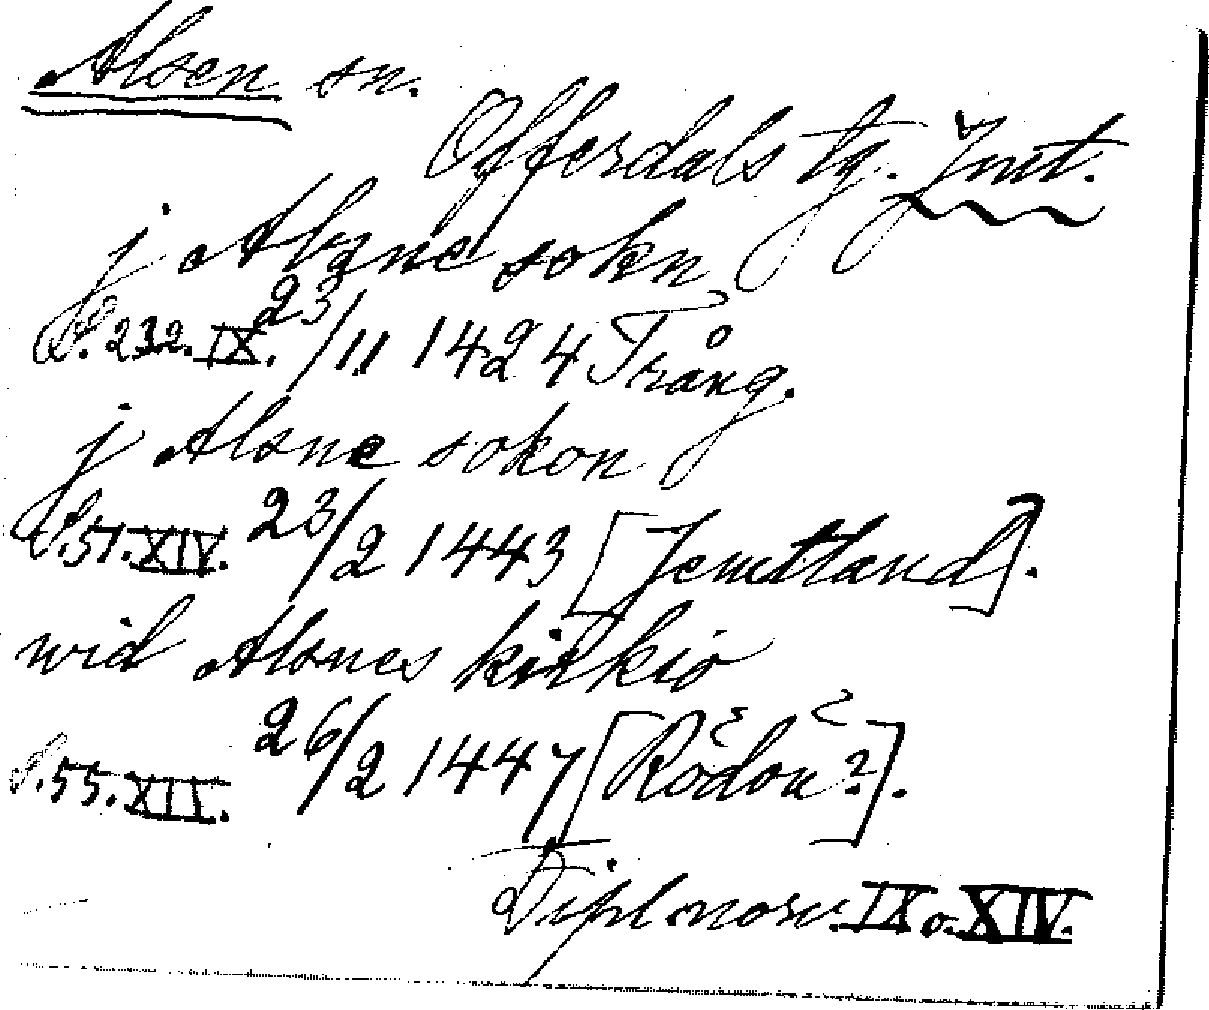 Alsen sn.
Offerdals tg. Jmt.
j Alsne sokn
S. 232. IX. 23/11 1424 Trång.
j Alsne sokon
S. 51. XIV. 23/2 1443 [Jemtland].
wid Alsnes kirkio
S. 55. XII. 26/2 1447 [Rödön?].
Dipl norv. IX o. XIV.